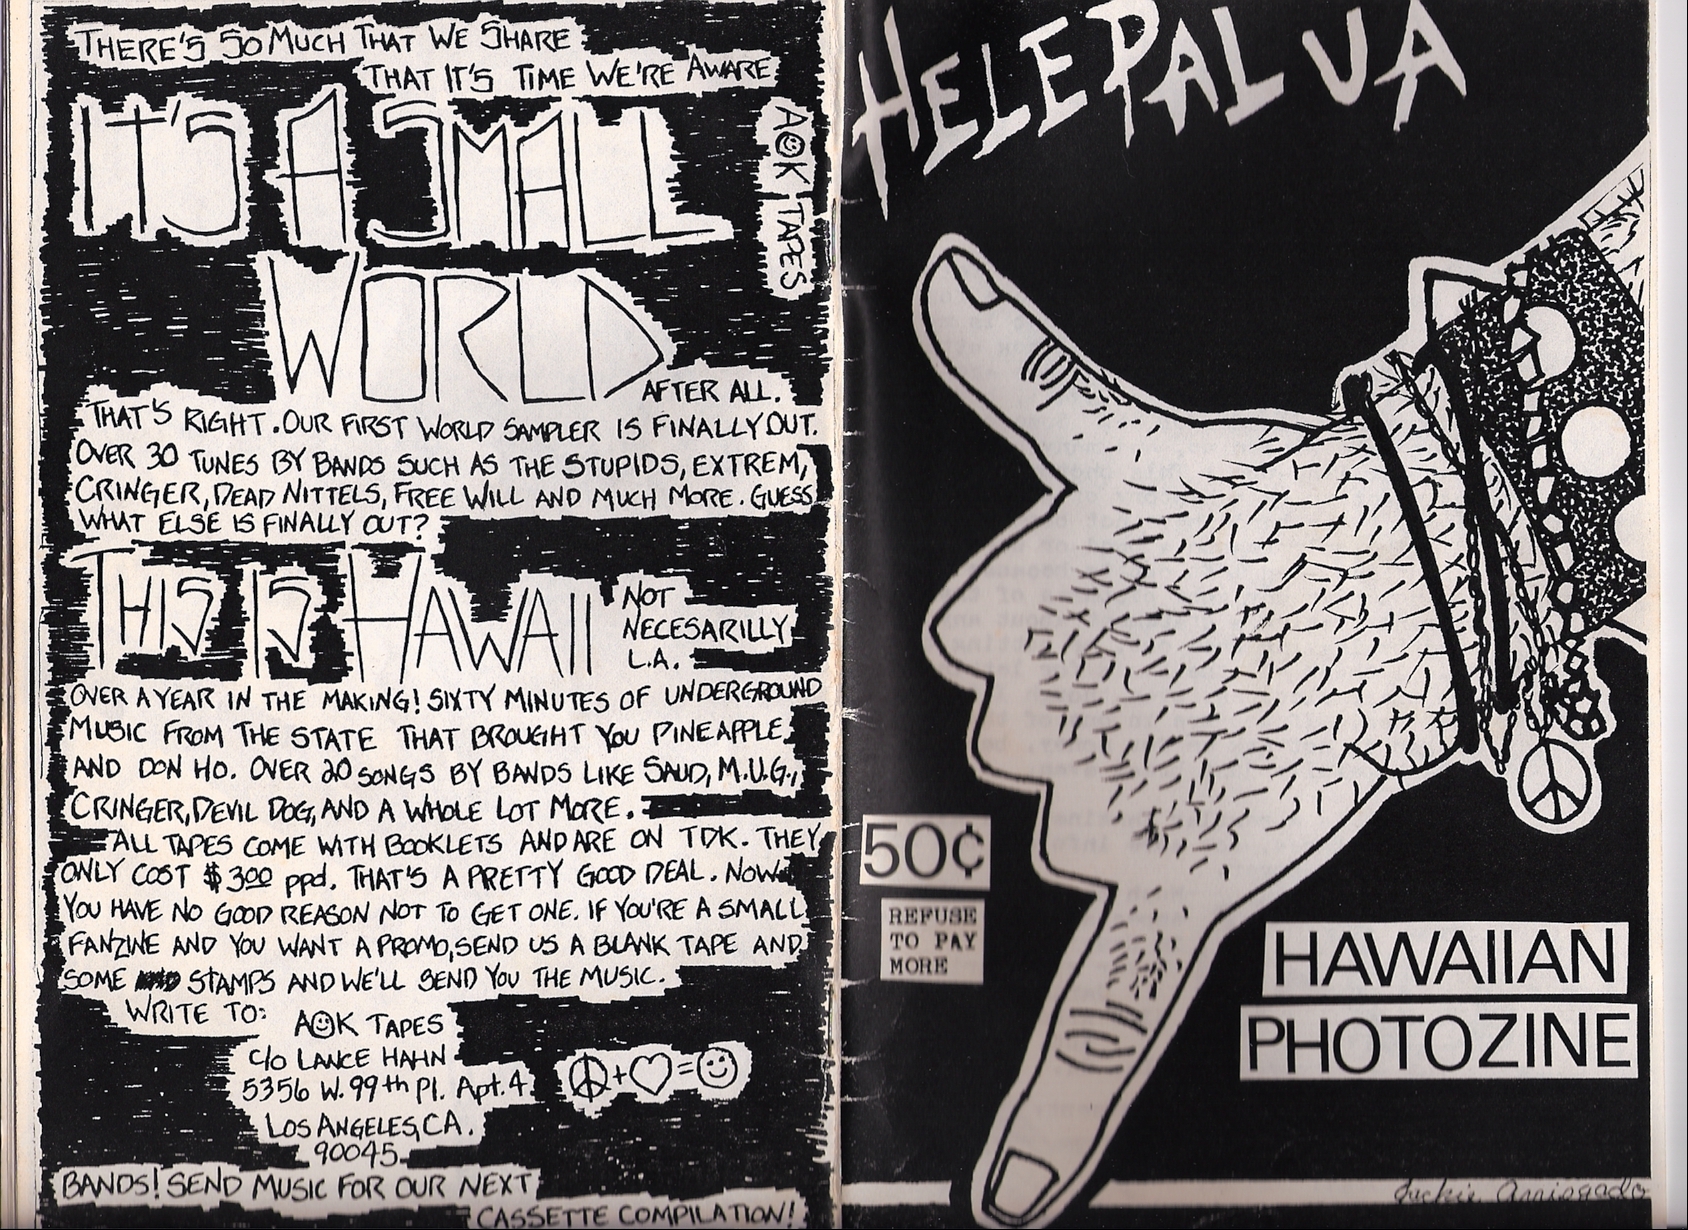 THERE'S SO MUCH THAT WE SHARE
THAT IT'S TIME WE'RE AWARE
IT'S A SMALL
WORLD
AFTER ALL.
A☺K TAPES
THAT'S RIGHT. OUR FIRST WORLD SAMPLER IS FINALLY OUT.
OVER 30 TUNES BY BANDS SUCH AS THE STUPIDS, EXTREM,
CRINGER, DEAD NITTELS, FREE WILL AND MUCH MORE. GUESS
WHAT ELSE IS FINALLY OUT?
THIS IS HAWAII
NOT
NECESARILLY
L.A.
OVER A YEAR IN THE MAKING! SIXTY MINUTES OF UNDERGROUND
MUSIC FROM THE STATE THAT BROUGHT YOU PINEAPPLE
AND DON HO. OVER 20 SONGS BY BANDS LIKE SAUD, M.U.G.,
CRINGER, DEVIL DOG, AND A WHOLE LOT MORE.
ALL TAPES COME WITH BOOKLETS AND ARE ON TDK. THEY
ONLY COST $3.00 ppd. THAT'S A PRETTY GOOD DEAL. NOW
YOU HAVE NO GOOD REASON NOT TO GET ONE. IF YOU'RE A SMALL
FANZINE AND YOU WANT A PROMO, SEND US A BLANK TAPE AND
SOME STAMPS AND WE'LL SEND YOU THE MUSIC.
WRITE TO:
A☺K TAPES
C/O LANCE HAHN
5356 W. 99th Pl. Apt. 4
LOS ANGELES, CA.
90045
BANDS! SEND MUSIC FOR OUR NEXT
CASSETTE COMPILATION!
HELE PALUA
50¢
REFUSE
TO PAY
MORE
HAWAIIAN
PHOTOZINE
Jackie Arriogado